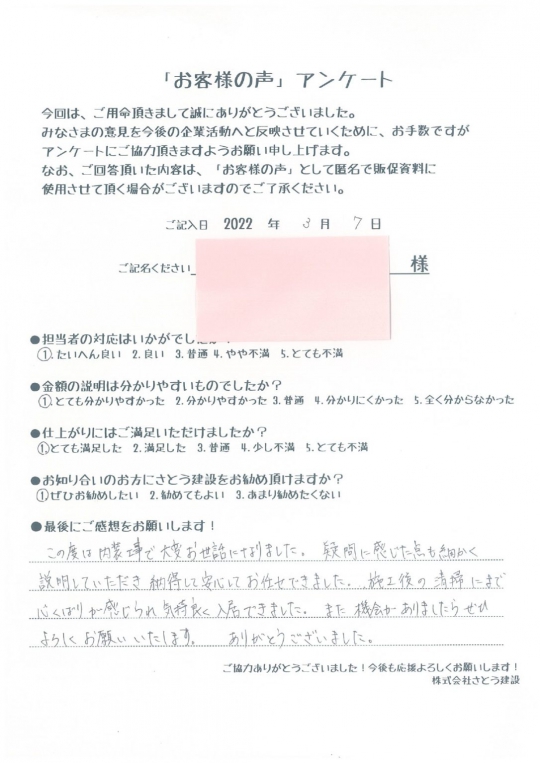 「お客様の声」アンケート
今回は、ご用命頂きまして誠にありがとうございました。
みなさまの意見を今後の企業活動へと反映させていくために、お手数ですが
アンケートにご協力頂きますようお願い申し上げます。
なお、ご回答頂いた内容は、「お客様の声」として匿名で販促資料に
使用させて頂く場合がございますのでご了承ください。
ご記入日 2022 年 3 月 7 日
ご記名ください 様
●担当者の対応はいかがでしたか?
①.たいへん良い 2.良い 3.普通 4.やや不満 5.とても不満
●金額の説明は分かりやすいものでしたか?
①.とても分かりやすかった 2.分かりやすかった 3.普通 4.分かりにくかった 5.全く分からなかった
●仕上がりにはご満足いただけましたか?
①.とても満足した 2.満足した 3.普通 4.少し不満 5.とても不満
●お知り合いのお方にさとう建設をお勧め頂けますか?
①ぜひお勧めしたい 2.勧めてもよい 3.あまり勧めたくない
●最後にご感想をお願いします!
この度は内装工事で大変お世話になりました。 疑問に感じた点も細かく
説明していただき納得して安心してお任せできました。 施工後の清掃にまで
心くばりが感じられ気持良く入居できました。 また機会がありましたらぜひ
よろしくお願いいたします。 ありがとうございました。
ご協力ありがとうございました!今後も応援よろしくお願いします!
株式会社さとう建設